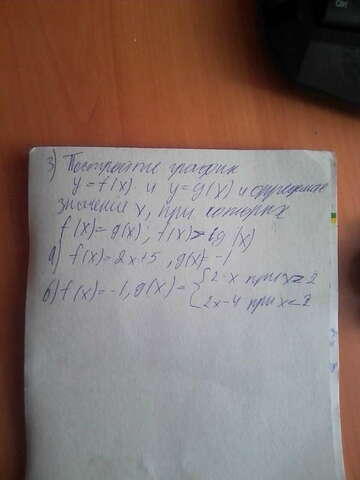 3) Постройте график
y = f(x) и y = g(x) и определите
значение x, при которых
f(x) = g(x); f(x) > g(x)
а) f(x) = 2x+5, g(x) = -1
б) f(x) = -1, g(x) = { 2-x при x ≥ 2
2x-4 при x < 2